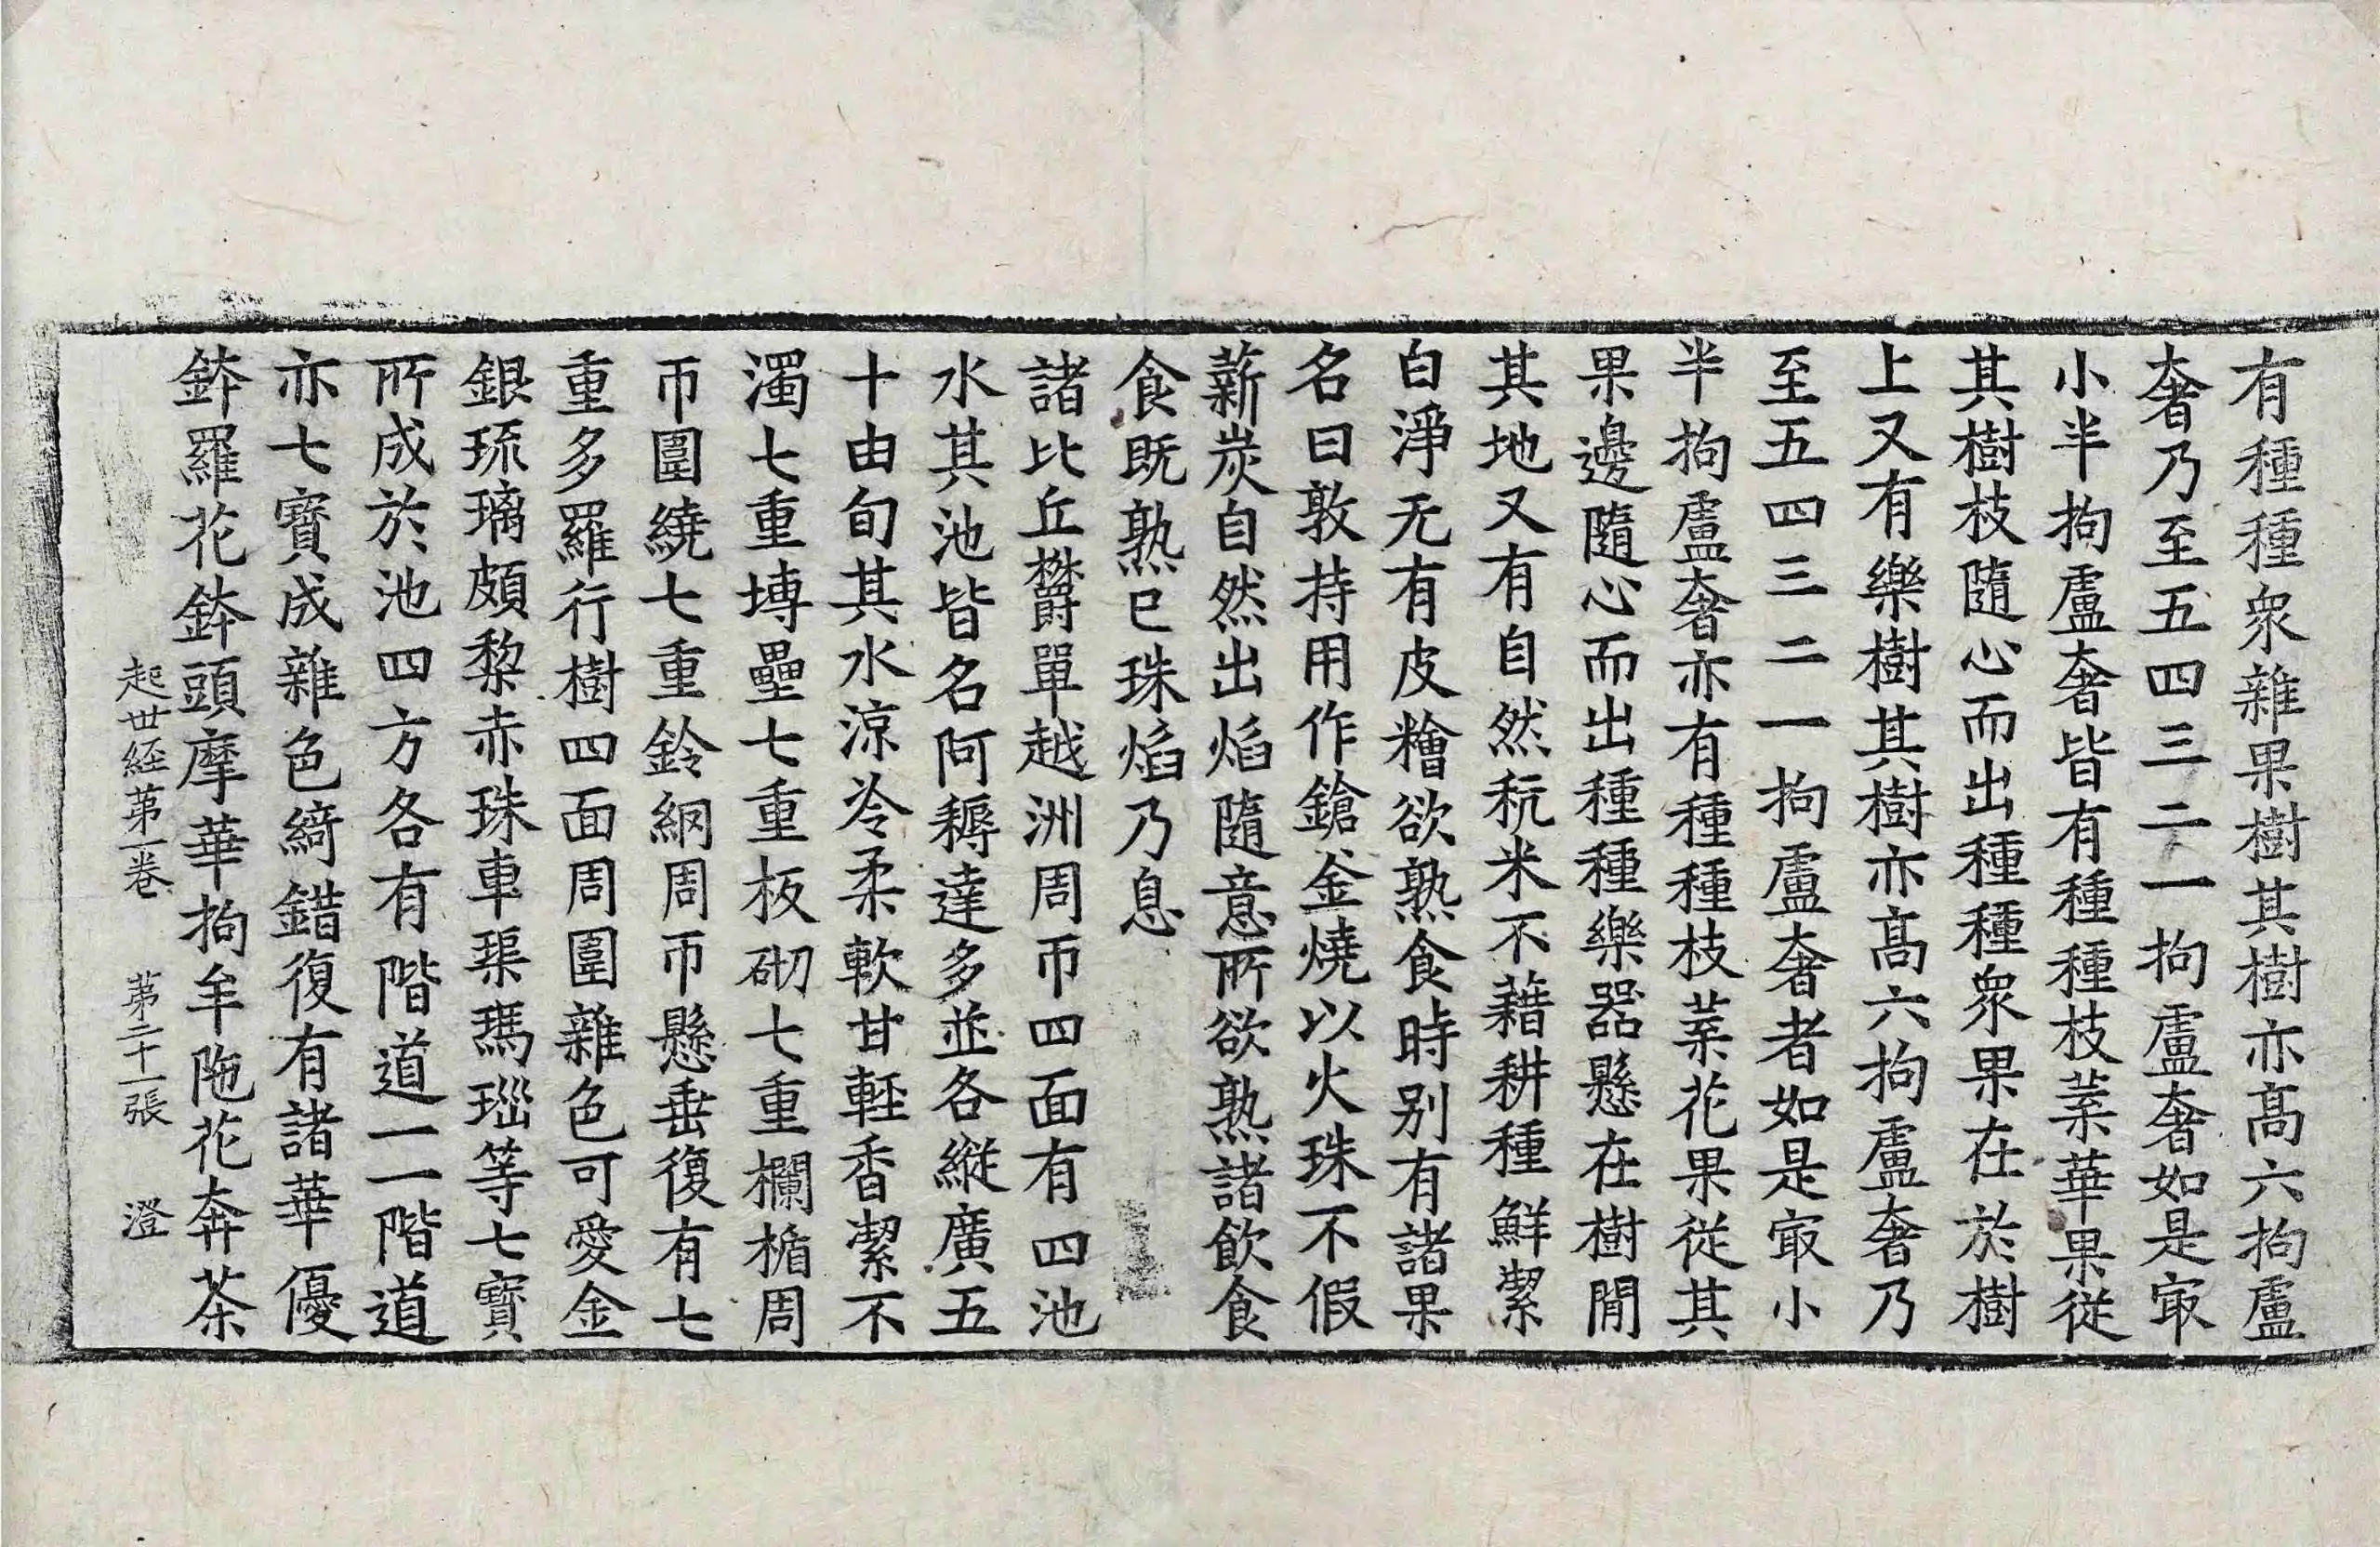 有種種衆雜果樹其樹亦髙六拘盧
奢乃至五四三二一拘盧奢如是㝡
小半拘盧奢皆有種種枝葉華果従
其樹枝隨心而出種種衆果在於樹
上又有樂樹其樹亦髙六拘盧奢乃
至五四三二一拘盧奢者如是㝡小
半拘盧奢亦有種種枝葉花果従其
果邊隨心而出種種樂器懸在樹閒
其地又有自然秔米不藉耕種鮮潔
白淨无有皮糩欲熟食時别有諸果
名曰敦持用作鎗釡燒以火珠不假
薪炭自然出焰隨意所欲熟諸飲食
食既熟已珠焰乃息
諸比丘欝單越洲周帀四面有四池
水其池皆名阿耨達多並各縱廣五
十由旬其水涼冷柔軟甘軽香潔不
濁七重塼壘七重板砌七重欄楯周
帀圍繞七重鈴網周帀懸垂復有七
重多羅行樹四面周圍雜色可愛金
銀琉璃頗黎赤珠車璖瑪瑙等七寶
所成於池四方各有階道一一階道
亦七寶成雜色綺錯復有諸華優
鉢羅花鉢頭摩華拘牟陁花奔茶
起世経苐一巻 苐二十一張 澄